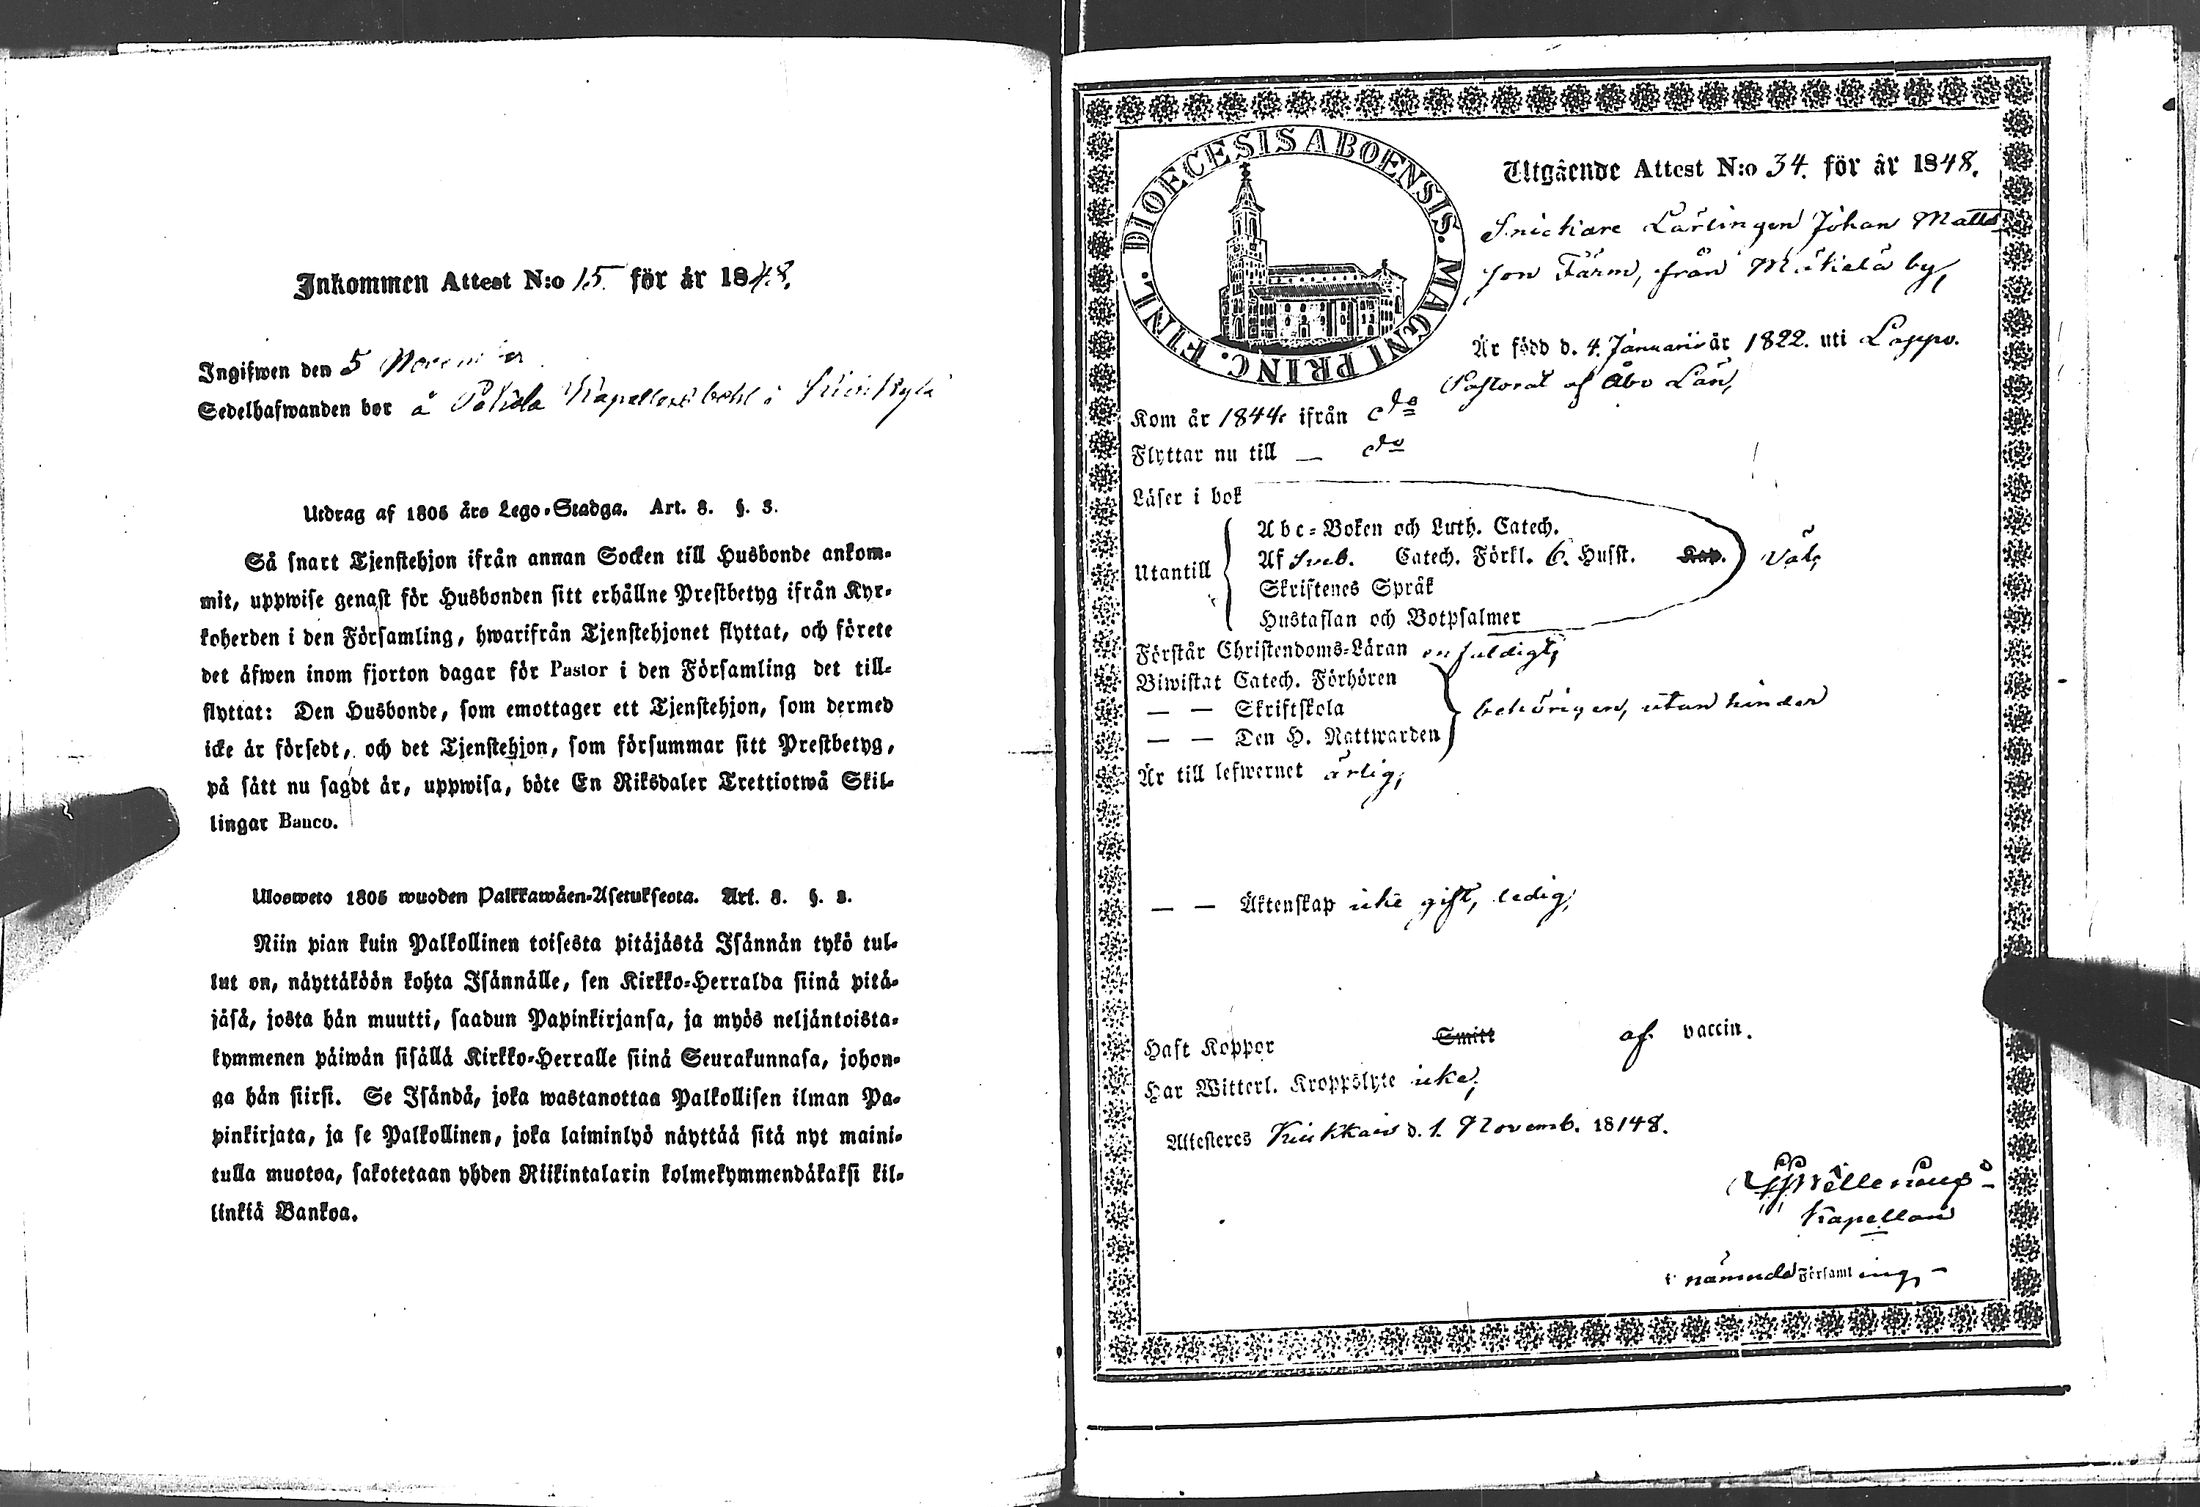 Inkommen Attest N:o 15. för år 1848.
Ingifwen den 5 November
Sedelhafwanden bor å Kapellansbohl i
Utdrag af 1805 års Lego-Stadga. Art. 8. §. 3.
Så snart Tjenstehjon ifrån annan Socken till Husbonde ankom-
mit, uppwise genast för Husbonden sitt erhållne Prestbetyg ifrån Kyr-
koherden i den Församling, hwarifrån Tjenstehjonet flyttat, och förete
det äfwen inom fjorton dagar för Pastor i den Församling det till-
flyttat: Den Husbonde, som emottager ett Tjenstehjon, som dermed
icke är försedt, och det Tjenstehjon, som försummar sitt Prestbetyg,
på sätt nu sagdt är, uppwisa, böte En Riksdaler Trettiotwå Skil-
lingar Banco.
Ulosweto 1805 wuoden Palkkawäen-Asetuksesta. Art. 8. §. 3.
Niin pian kuin Palkollinen toisesta pitäjästä Isännän tykö tul-
lut on, näyttäköön kohta Isännälle, sen Kirkko-Herralda siinä pitä-
jäsä, josta hän muutti, saadun Papinkirjansa, ja myös neljäntoista-
kymmenen päiwän sisällä Kirkko-Herralle siinä Seurakunnasa, johon-
ga hän siirsi. Se Isändä, joka wastanottaa Palkollisen ilman Pa-
pinkirjata, ja se Palkollinen, joka laiminlyö näyttää sitä nyt maini-
tulla muotoa, sakotetaan yhden Riikintalarin kolmekymmendäkaksi kil-
linkiä Bankoa.
DIOECESIS ABOENSIS. MAGNI PRINC. FINL.
Utgående Attest N:o 34. för år 1848.
Snickare Lärlingen Johan Matts
son Färm, från Mäkelä by,
Är född d. 4. Januarii år 1822. uti Loppo.
Pastorat af Åbo Län,
Kom år 1844 ifrån do
Flyttar nu till — do
Läser i bok
Utantill
Abc-Boken och Luth. Catech.
Af Sveb. Catech. Förkl. 6. Husst. Kap. Väl,
Skriftenes Språk
Hustaflan och Botpsalmer
Förstår Christendoms-Läran enfaldigt,
Biwistat Catech. Förhören
— — Skriftskola behörigen, utan hinder
— — Den H. Nattwarden
Är till lefwernet ärlig,
— — Äktenskap icke gift, ledig,
Haft Koppor Smitt af vaccin.
Har Witterl. Kroppslyte icke,
Attesteres Kiikkais d. 1. Novemb. 18148.
Kapellan
i nämnde Församling, –